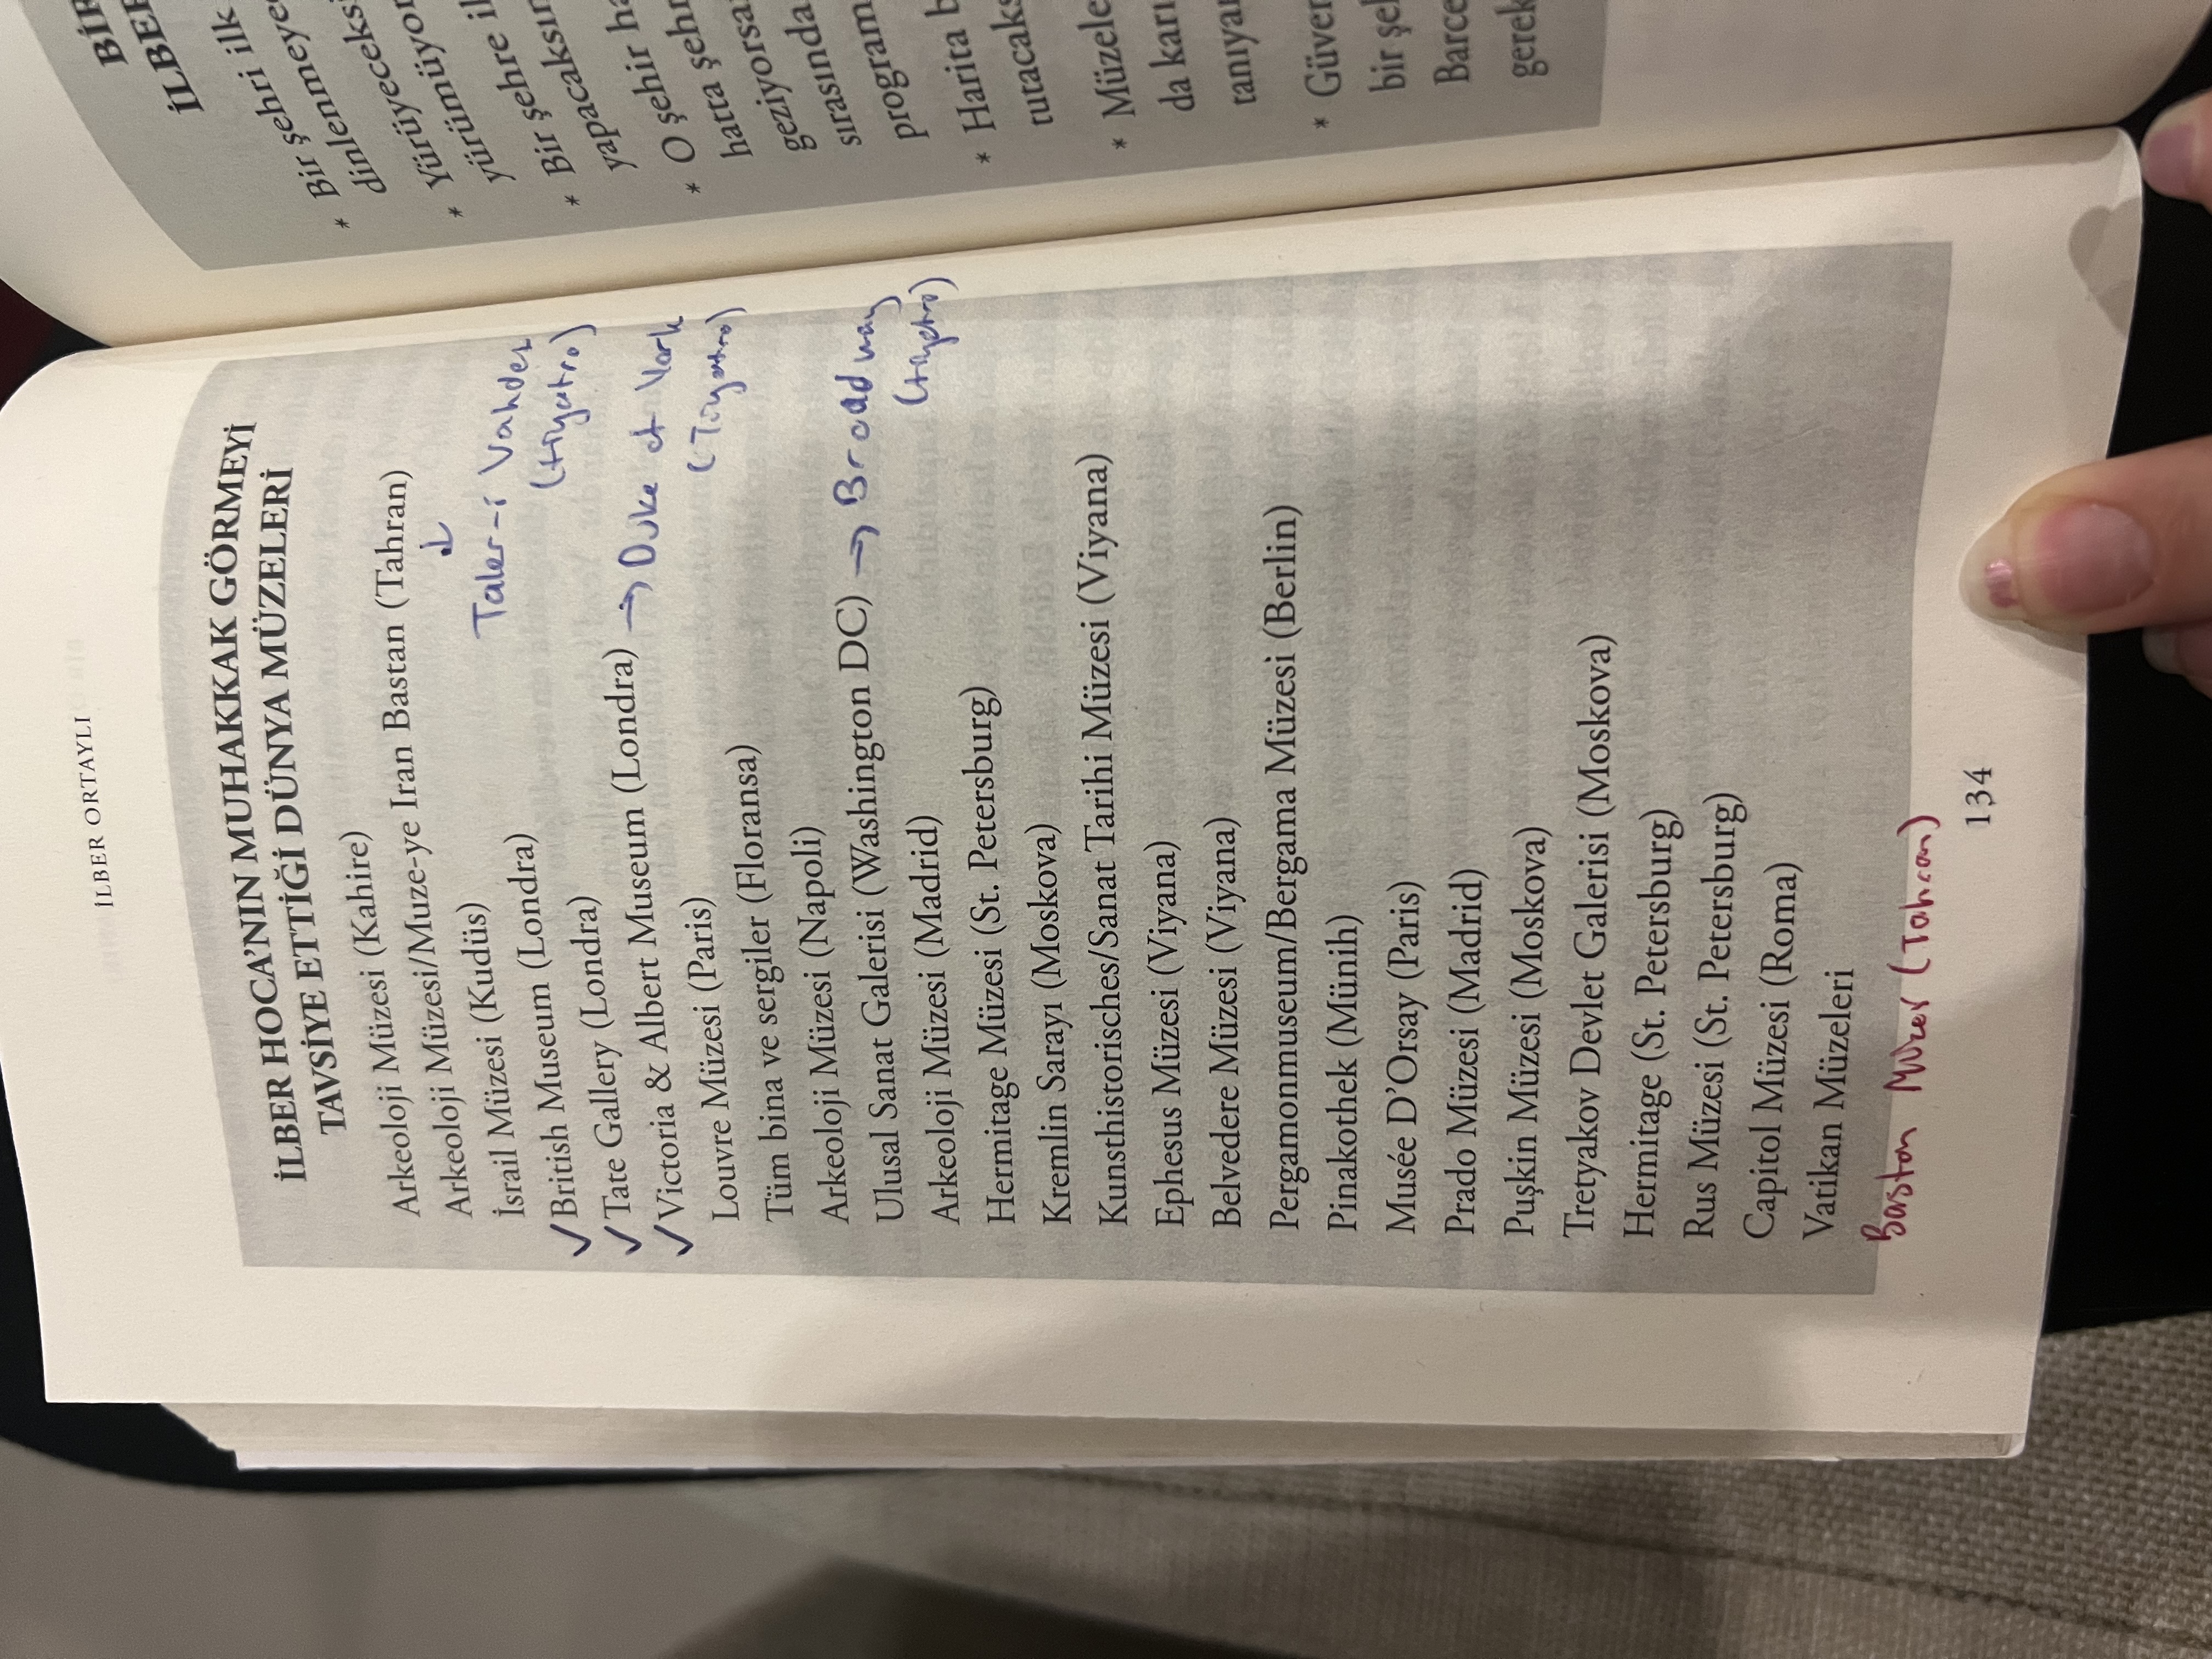 İLBER ORTAYLI
İLBER HOCA'NIN MUHAKKAK GÖRMEYİ
TAVSİYE ETTİĞİ DÜNYA MÜZELERİ
Arkeoloji Müzesi (Kahire)
Arkeoloji Müzesi/Muze-ye Iran Bastan (Tahran)
↓
Taler-i Vahdet
(tiyatro)
İsrail Müzesi (Kudüs)
✓ British Museum (Londra)
✓ Tate Gallery (Londra)
✓ Victoria & Albert Museum (Londra) → Duke of York
(Tiyatro)
Louvre Müzesi (Paris)
Tüm bina ve sergiler (Floransa)
Arkeoloji Müzesi (Napoli)
Ulusal Sanat Galerisi (Washington DC) → Broadway
(tiyatro)
Arkeoloji Müzesi (Madrid)
Hermitage Müzesi (St. Petersburg)
Kremlin Sarayı (Moskova)
Kunsthistorisches/Sanat Tarihi Müzesi (Viyana)
Ephesus Müzesi (Viyana)
Belvedere Müzesi (Viyana)
Pergamonmuseum/Bergama Müzesi (Berlin)
Pinakothek (Münih)
Musée D'Orsay (Paris)
Prado Müzesi (Madrid)
Puşkin Müzesi (Moskova)
Tretyakov Devlet Galerisi (Moskova)
Hermitage (St. Petersburg)
Rus Müzesi (St. Petersburg)
Capitol Müzesi (Roma)
Vatikan Müzeleri
Bastan (Tahran)
134
BİR
İLBER
Bir şehri ilk
* Bir şehri
dinlenmeye
dinleyeceksi
Yürüyecek
* Yürümüyor
yürüme
* Bir şehre il
yapacaksın
Bir şehir ha
* O şehir
hatta şehr
geziyorsa
sırasında
program
* Harita b
tutacaks
* Müzele
da karı
tanıya
* Güver
bir şel
Barce
gerek